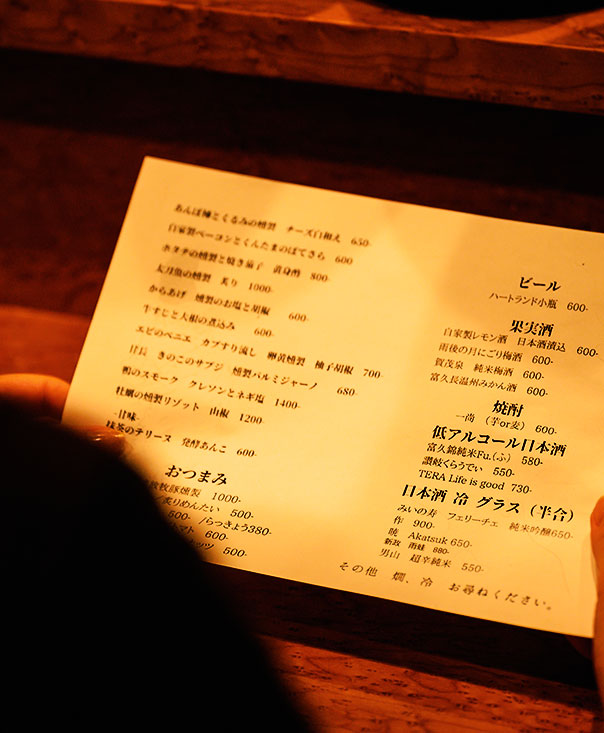 あんぽ柿とくるみの燻製 チーズ白和え 650-
自家製ベーコンとくんたまのぽてさら 600
ホタテの燻製と焼き茄子 黄身酢 800-
太刀魚の燻製 炙り 1000-
からあげ 燻製のお塩と胡椒 600-
牛すじと大根の煮込み 600-
エビのベニエ カブすり流し 卵黄燻製 柚子胡椒 700
甘長 きのこのサブジ 燻製パルミジャーノ 680-
鴨のスモーク クレソンとネギ塩 1400-
牡蠣の燻製リゾット 山椒 1200-
-甘味-
抹茶のテリーヌ 発酵あんこ 600-
おつまみ
牧豚燻製 1000-
炙りめんたい 500-
500- /らっきょう380-
マト 600-
ッツ 500-
ビール
ハートランド小瓶 600-
果実酒
自家製レモン酒 日本酒漬込 600-
雨後の月にごり梅酒 600-
賀茂泉 純米梅酒 600-
富久長温州みかん酒 600-
焼酎
一尚 (芋or麦) 600-
低アルコール日本酒
富久錦純米Fu.(ふ) 580-
讃岐くらうでぃ 550-
TERA Life is good 730-
日本酒 冷 グラス (半合)
みいの寿 フェリーチェ 純米吟醸650-
作 900-
暁 Akatsuk 650-
新政 雨蛙 880-
男山 超辛純米 550-
その他 燗、冷 お尋ねください。